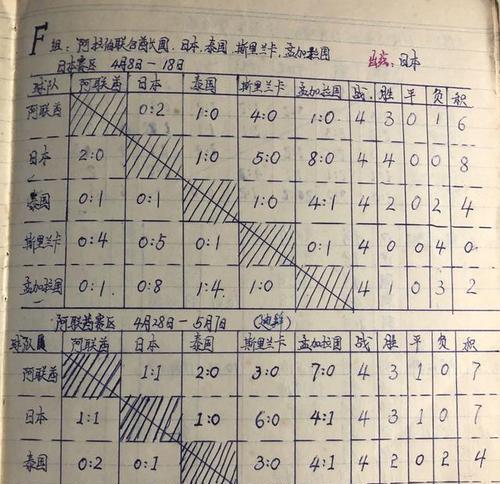 F组: 阿拉伯联合酋长国. 日本. 泰国. 斯里兰卡. 孟加拉国
日本赛区 4月8日—18日 日本
球队 阿联酋 日本 泰国 斯里兰卡 孟加拉国 战 胜 平 负 积
阿联酋 0:2 1:0 4:0 1:0 4 3 0 1 6
日本 2:0 1:0 5:0 8:0 4 4 0 0 8
泰国 0:1 0:1 1:0 4:1 4 2 0 2 4
斯里兰卡 0:4 0:5 0:1 0:1 4 0 0 4 0
孟加拉国 0:1 0:8 1:4 1:0 4 1 0 3 2
阿联酋赛区 4月28日—5月7日 (迪拜)
球队 阿联酋 日本 泰国 斯里兰卡 孟加拉国 战 胜 平 负 积
阿联酋 1:1 2:0 3:0 7:0 4 3 1 0 7
日本 1:1 1:0 6:0 4:1 4 3 1 0 7
泰国 0:2 0:1 3:0 4:1 4 2 0 2 4